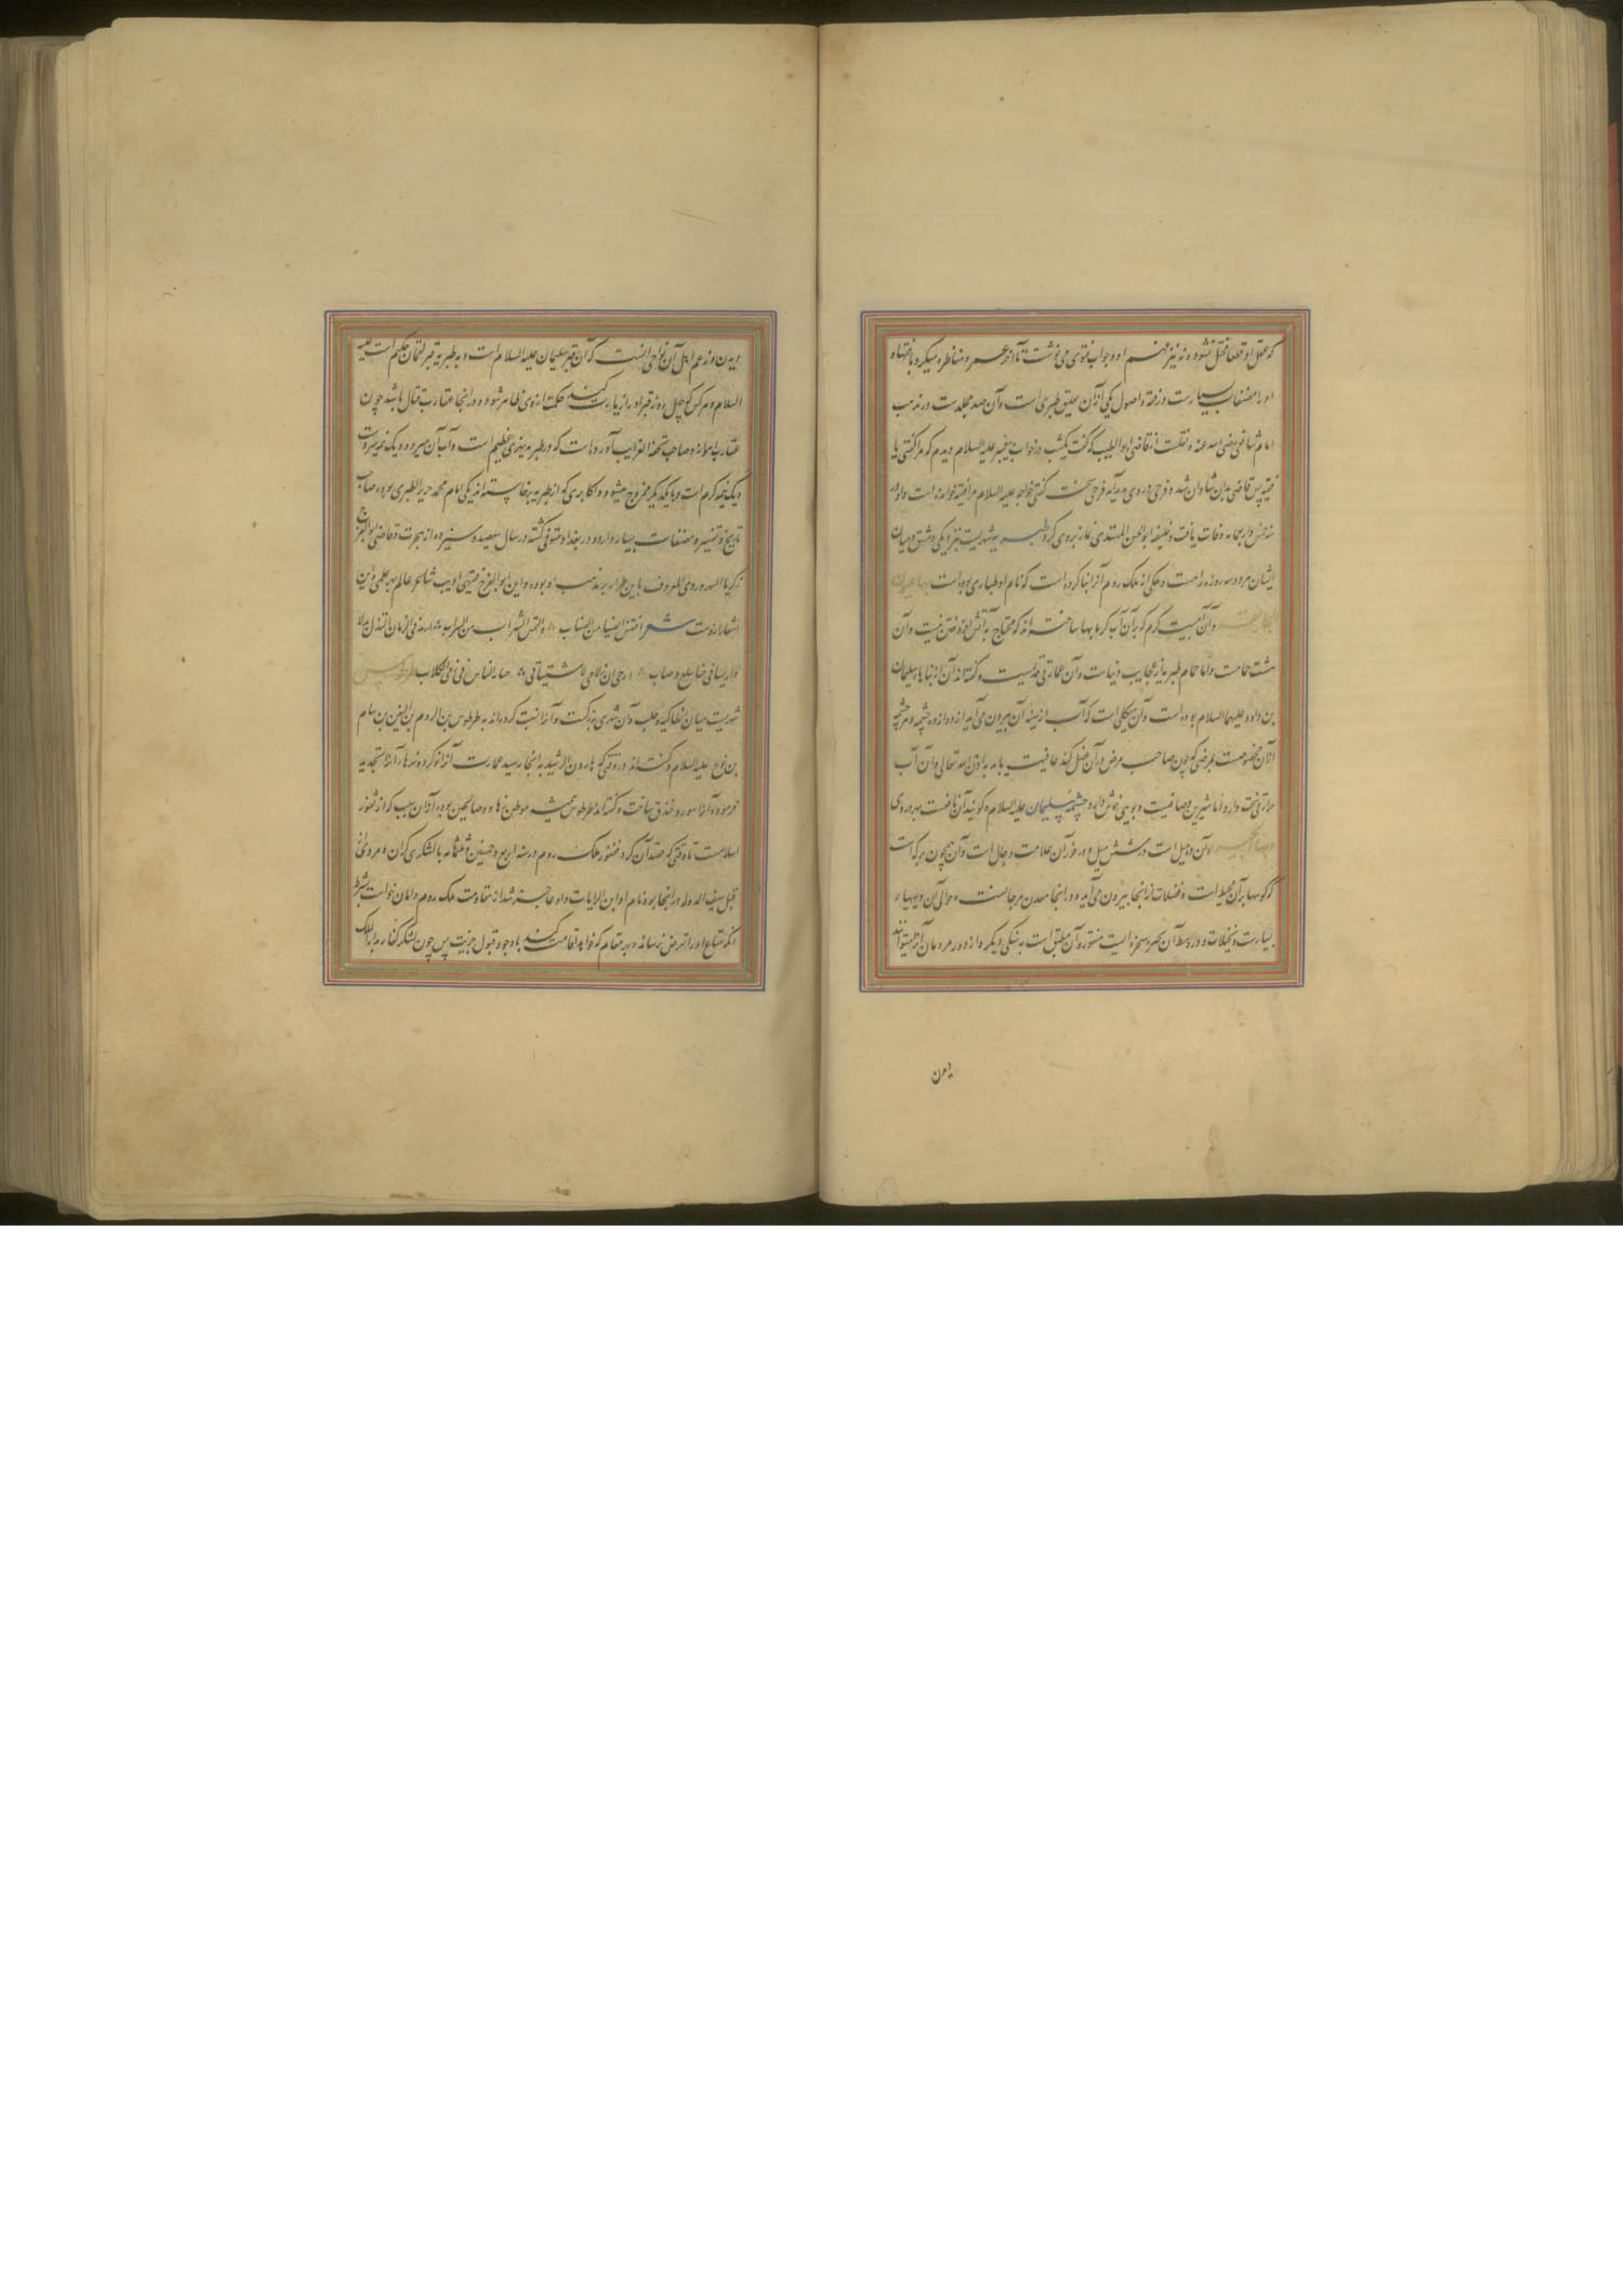 که عقل او قطعا مختل نشود و نه نیز فهم او و جواب فتوی می نوشت تا آخر عمر و مناظره میکرد با فقهاء
او را مصنفات بسیارست در فقه و اصول یکی از آن تعلیق طبری است و آن صد مجلدست در مذهب
امام شافعی رضی الله عنه و نقلست از قاضی ابو الطیب که گفت یکشب در خواب پیغمبر علیه السلام دیدم که مرا گفتی یا
فقیه پس قاضی بدان شادان شد و فرحی در وی پدید آمد گفتی خواجه علیه السلام مرا فقیه خوانده است و او در
سنه خمس و اربعمایه وفات یافت و خلیفه ابو الحسن المهتدی نماز بر وی کرد طبریه شهریست نزدیکی دمشق و میان
ایشان هر دو سه روزه راهست و ملکی از ملوک روم آنرا بنا کرده است که نام او طباری بوده است
و آن آبیست گرم که بر آن آب گرمابها ساخته اند که محتاج به آتش افروختن نیست و آن
هشت حمامست و اما حمام طبریه از عجایب دنیاست و آن عمارتی قدیمیست و گفته اند آن از بناهاء سلیمان
بن داود علیهما السلام بوده است و آن هیکلی است که آب از سینه آن بیرون می آید از دوازده چشمه و هر چشمه
از آن مخصوصست بمرضی که چون صاحب مرض در آن غسل کند عافیت یابد به اذن الله تعالی و آن آب
حرارتی سخت دارد و اما شیرین و صافیست و بویی خوش دارد و چشمه سلیمان علیه السلام گویند آن نافعست بهر دردی
و آن ده میل است در شش میل و در غور آن علامت دجال است و آن همچون برکه است
که کوهها به آن محیط است و فضلات از آنجا بیرون می آید و در آنجا معدن مرجانست و حوالی آن دیهها
بسیارست و نخیلات و در وسط آن بحر صخره ایست منقوره و آن مطبق است به سنگی دیگر و از دور مردمان آنرا میتوانند
دیدن
دیدن و زعم اهل آن نواحی آنست که آن قبر سلیمان علیه السلام است و به طبریه قبر لقمان حکیم است علیه
السلام و هر کس که چهل روز قبر او را زیارت کند حکمت از وی ظاهر شود و در آنجا عقارب قتال باشد چون
عقارب اهواز و صاحب تحفة الغرایب آورده است که در طبریه نهری عظیم است و آب آن میرود و یک نیمه سردست
و یک نیمه گرم است و با یکدیگر ممزوج نمیشود و اکابری که از طبریه برخاسته اند یکی امام محمد جریر الطبری بوده صاحب
تاریخ و تفسیر و مصنفات بسیار دارد و در بغداد متوفی گشته در سال سیصد و سیزده از هجرت و قاضی ابو الفرج
زکریا النهروروی المعروف باین طرار بر مذهب او بوده و این ابو الفرج فقیهی ادیب شاعر عالم بهر علمی و این
اشعار از وست شعر اقتبس الضیا من الضباب و التمس الشراب من السراب ارید فی الزمان النذل بذلا
و اریا فی جنا سلع و صاب ارجی ان الاقی لاشتیاقی خیار الناس فی زمن الکلاب طرطوس
شهریست میان انطاکیه و حلب و آن شهری بزرگست و آنرا نسبت کرده اند به طرطوس بن الروم بن الیفن بن سام
بن نوح علیه السلام و گفته اند در وقتی که هارون الرشید به آنجا رسید عمارت آنرا نو کرد و نهرها آنرا تجدید
فرموده و آنرا سور و خندق ساخت و گفته اند طرطوس همیشه موطن زهاد و صالحین بوده از آن سبب که از ثغور
اسلامست تا وقتی که قصد آن کرد فغفور ملک روم در سنه اربع و خمسین و ثلثمایه با لشکری گران و مردی از
قبل سیف الدوله در آنجا بود نام او ابن الزیات و او عاجز شد از مقاومت ملک روم و امان خواست به شرط
آنکه متاع او را تعرض نرسانند و بهر مقام که خواهد اقامت کند با وجود قبول جزیت پس چون لشکر کفار به در الملک